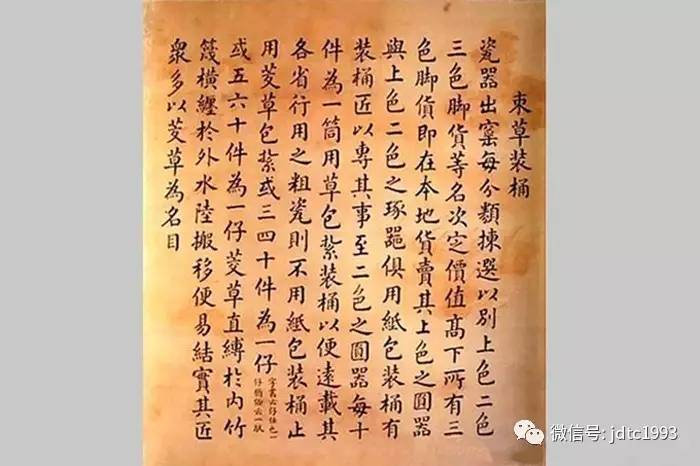 束草裝桶
瓷器出窰每分類揀選以別上色二色
三色脚貨等名次定價值髙下所有三
色脚貨即在本地貨賣其上色之圓器
與上色二色之琢器俱用紙包裝桶有
裝桶匠以專其事至二色之圓器每十
件為一筒用草包紮裝桶以便遠載其
各省行用之粗瓷則不用紙包裝桶止
用茭草包紮或三四十件為一仔字書云仔任也一仔猶俗云一馱
或五六十件為一仔茭草直縛於内竹
篾横纏於外水陸搬移便易結實其匠
衆多以茭草為名目
微信号: jdtc1993